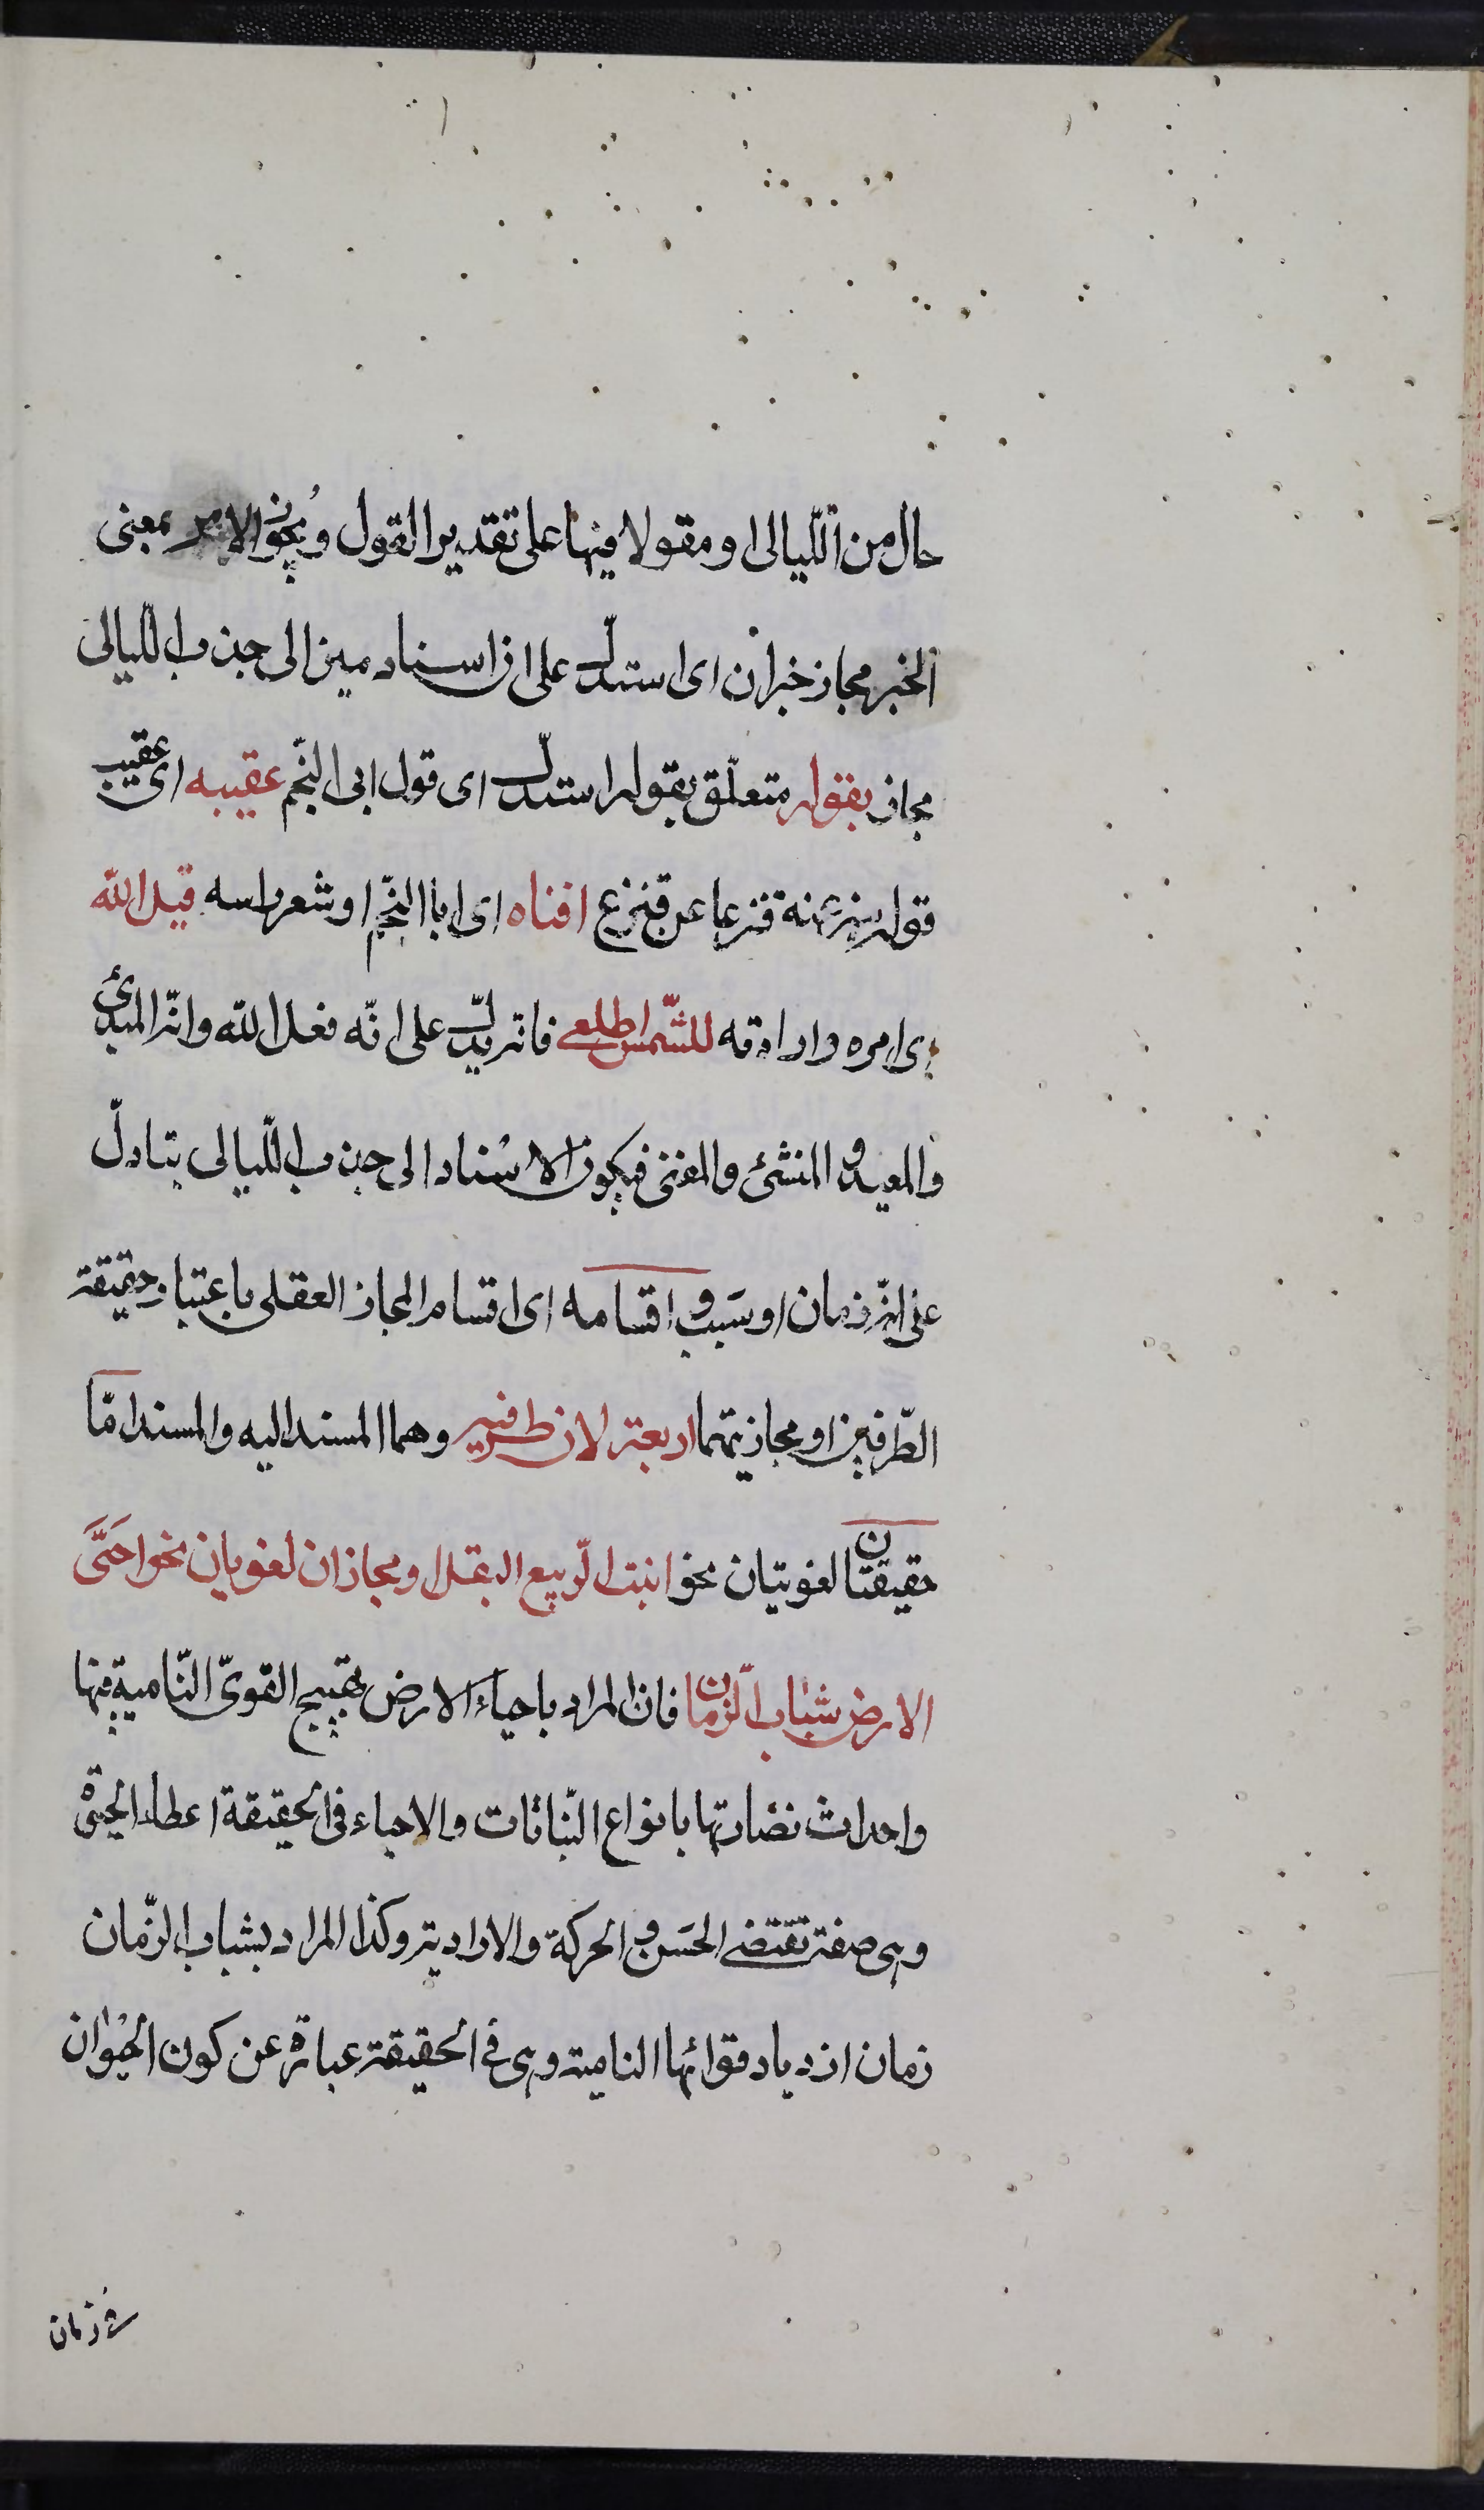 حال من اللّيالى او مقولا فيها على تقدير القول ويجوز الامر بمعنى
الخبر مجاز خبر ان اى استدلّ على ان اسناد ميز الى جذب اللّيالى
مجاز بقوله متعلّق بقوله استدلّ اى قول ابى النّجم عقيبه اى عقيب
قوله ميز عنه قنزعا عن قنزع افناه اى ابا النّجم او شعر راسه قيل الله
اى امره وارادته للشّمس اطلعى فانه يدلّ على انّه فعل الله وانّه المبدئ
والمعيد والمنشئ والمفنى فيكون الاسناد الى جذب اللّيالى بتاولّ
على انّه زمان او سبب و اقسامه اى اقسام المجاز العقلى باعتبار حقيقة
الطّرفين او مجازيتهما اربعة لان طرفيه وهما المسند اليه والمسند امّا
حقيقتان لغويتان نحو انبت الرّبيع البقل او مجازان لغويان نحو احيَى
الارض شباب الزّمان فان المراد باحياء الارض تهييج القوىّ النّامية فيها
واحداث نضارتها بانواع النّباتات والاحياء فى الحقيقة اعطاء الحيوة
وهى صفة تقتضى الحسَ و الحركة والارادية وكذا المراد بشباب الزّمان
زمان ازدياد قوائها النامية وهى فى الحقيقة عبارة عن كون الحيوان
فى زمان